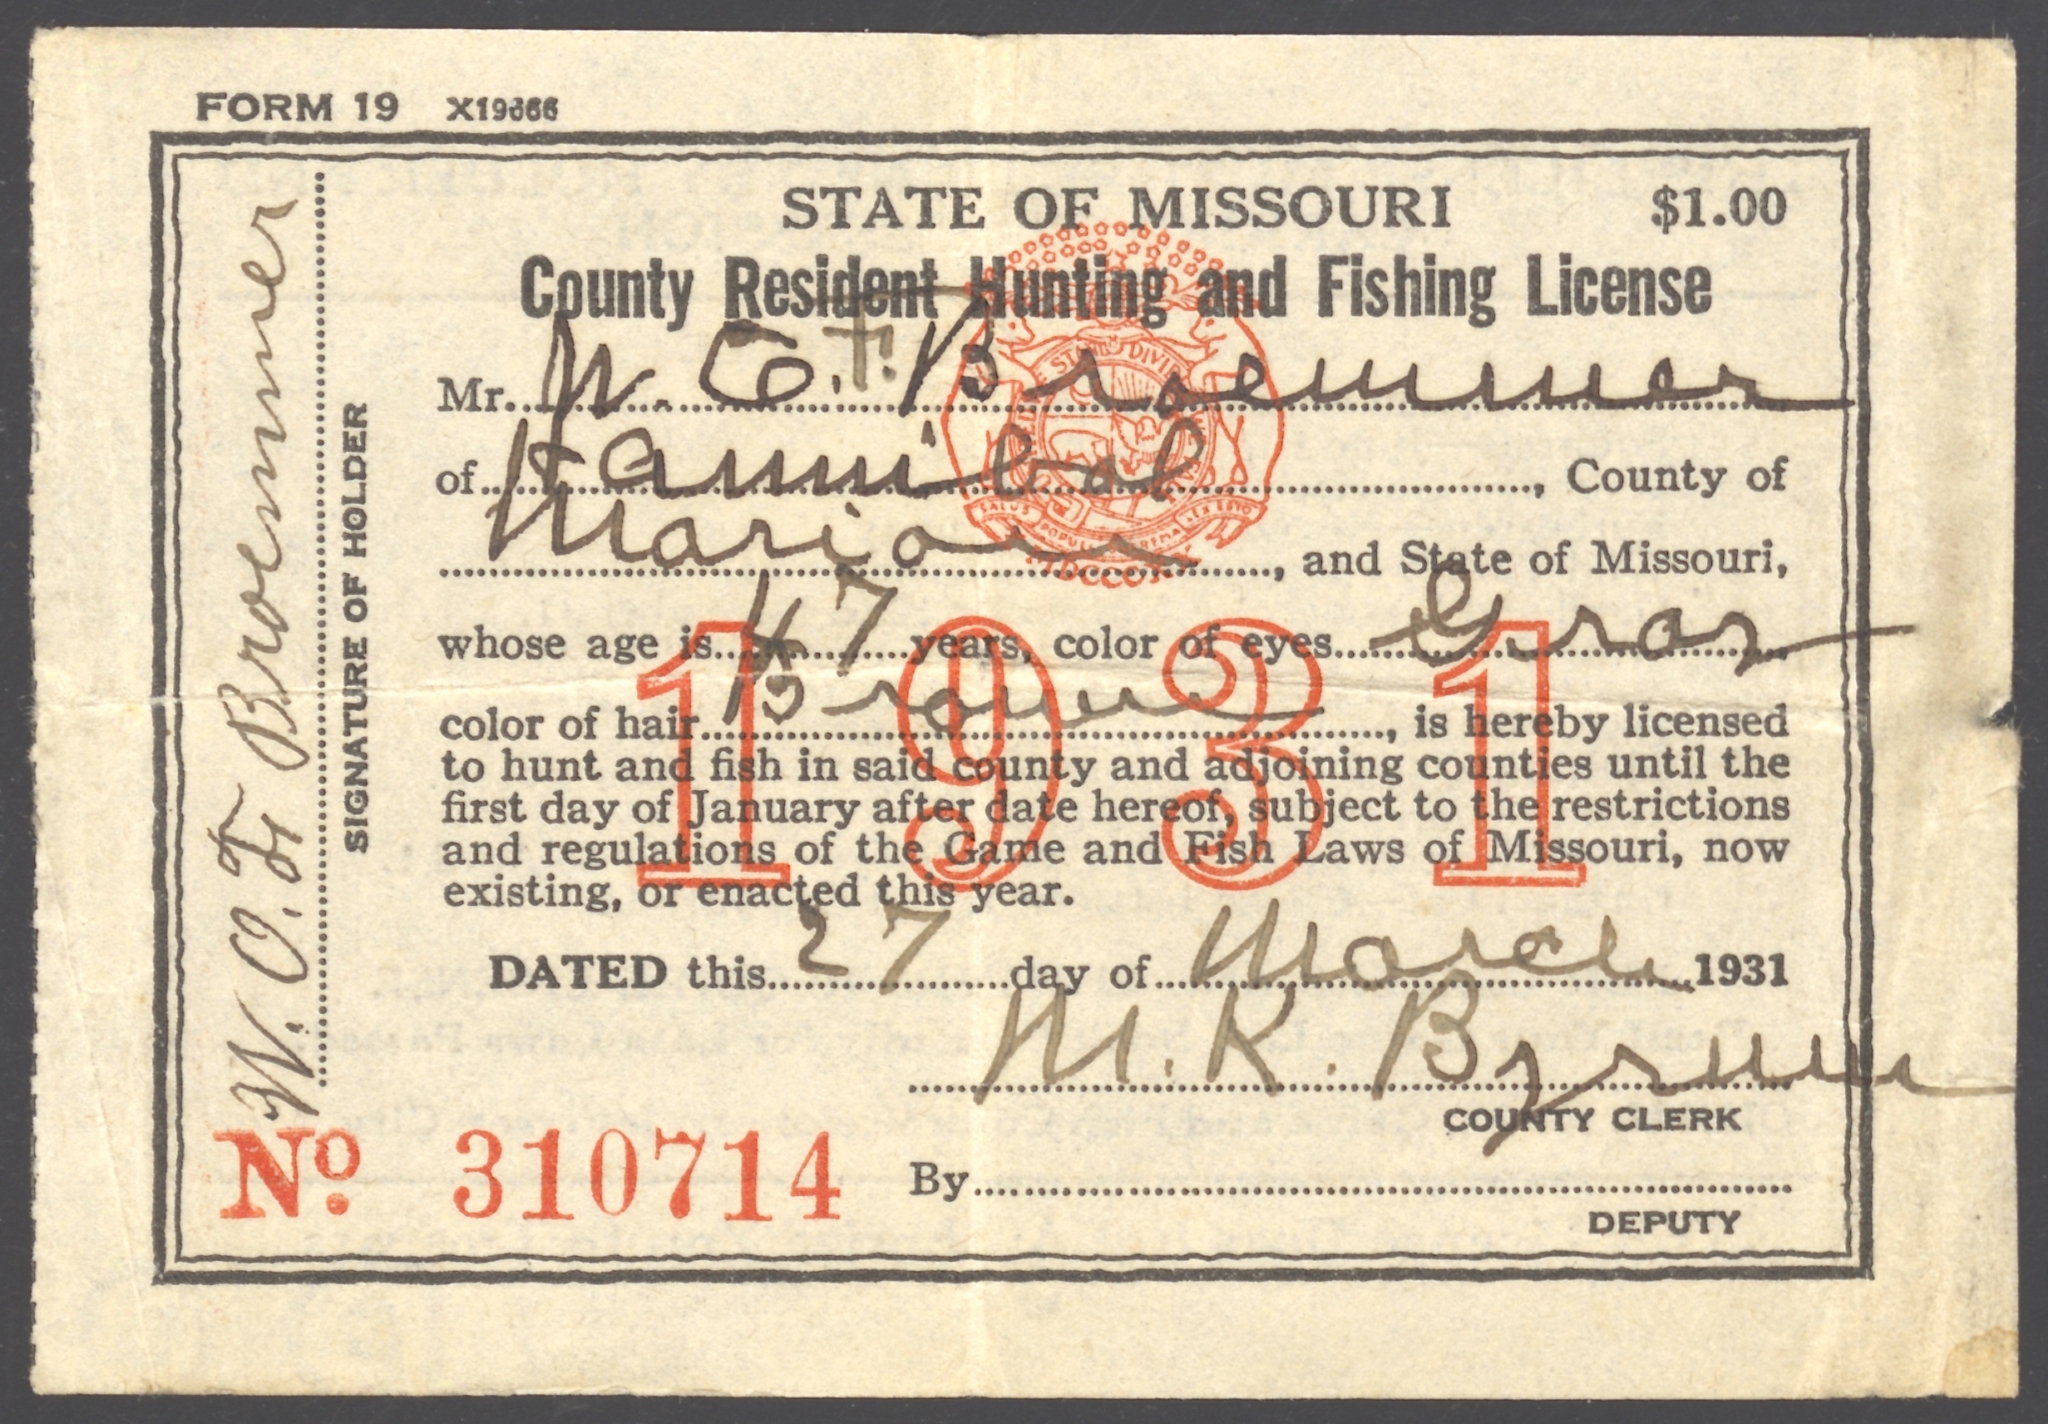 FORM 19 X19666
STATE OF MISSOURI $1.00
County Resident Hunting and Fishing License
Mr. W. O. F. Broemmer
of Hannibal, County of
Marion, and State of Missouri,
whose age is 47 years, color of eyes Gray
color of hair Brown, is hereby licensed
to hunt and fish in said county and adjoining counties until the
first day of January after date hereof, subject to the restrictions
and regulations of the Game and Fish Laws of Missouri, now
existing, or enacted this year.
1931
DATED this 27 day of March 1931
M. K. Byrum
COUNTY CLERK
By
DEPUTY
No. 310714
W. O. F. Broemmer
SIGNATURE OF HOLDER